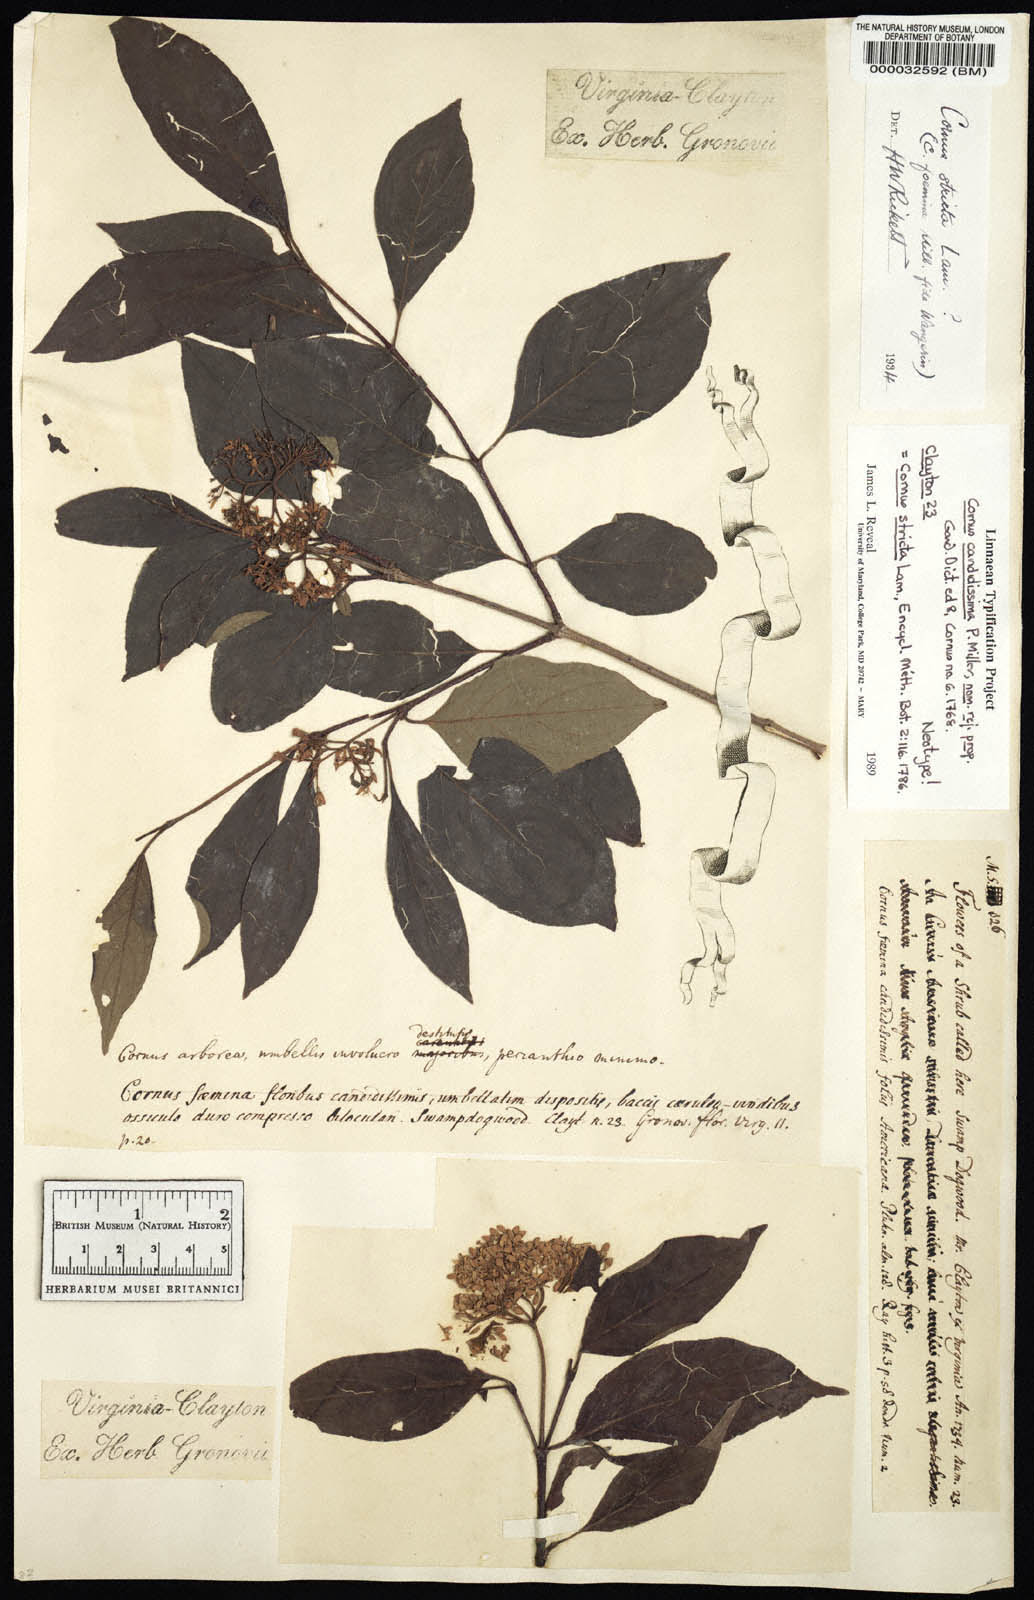 THE NATURAL HISTORY MUSEUM, LONDON
DEPARTMENT OF BOTANY
000032592 (BM)
Virginia-Clayton
Ex. Herb. Gronovii
Cornus stricta Lam. ?
(C. foemina Mill. fide Wangerin)
DET. HW Rickett 1934
Linnaean Typification Project
Cornus candidissima P. Miller, nom. rej. prop.
Gard. Dict. ed 8, Cornus no 6. 1768.
Neotype!
Clayton 23
= Cornus stricta Lam., Encycl. Méth. Bot. 2:116. 1786.
James L. Reveal 1989
University of Maryland, College Park, MD 20742 – MARY
M.S. 326
Flowers of a Shrub called here Swamp Dogwood. Mr. Clayton ex Virginia An. 1734. Num. 23.
Cornus fœmina candidissimis foliis Americana. Pluk. alm. 128. Ray hist. 3 p. 58 Dendr. num. 2
destitutis
Cornus arborea, umbellis involucro majoribus, perianthio minimo.
Cornus fœmina floribus candidissimis, umbellatim dispositis, baccis cœruleo-viridibus
ossiculo duro compresso bilocular. Swampdogwood. Clayt. n. 23. Gronov. flor. Virg. II.
p. 20.
1 2
BRITISH MUSEUM (NATURAL HISTORY)
1 2 3 4 5
HERBARIUM MUSEI BRITANNICI
Virginia-Clayton
Ex. Herb Gronovii